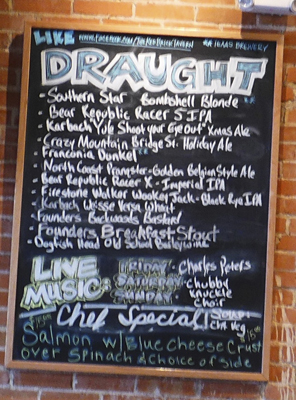 LIKE www.facebook.com/ TEXAS BREWERY
DRAUGHT
- Southern Star Bombshell Blonde
- Bear Republic Racer 5 IPA
- Karbach Yule Shoot your Eye out Xmas Ale
- Crazy Mountain Bridge St. Holiday Ale
- Franconia Dunkel
- North Coast Prangster-Golden Belgian Style Ale
- Bear Republic Racer X - Imperial IPA
- Firestone Walker Wookey Jack - Black Rye IPA
- Karbach Weisse Versa Wheat
- Founders Backwoods Bastard
- Founders Breakfast Stout
- Dogfish Head Old School Barleywine
LIVE MUSIC
FRIDAY Charles Peters
SATURDAY Chubby Knuckle Choir
SUNDAY
Chef Special
Salmon w/ Blue Cheese Crust
over Spinach & choice of side